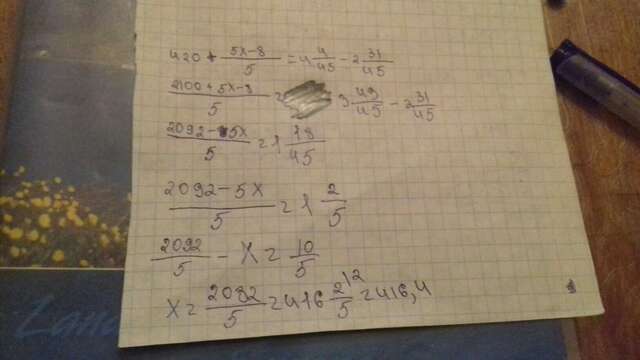 420 + (5x-8)/5 = 4 4/45 - 2 31/45
(2100+5x-8)/5 = 3 49/45 - 2 31/45
(2092-5x)/5 = 1 18/45
(2092-5x)/5 = 1 2/5
2092/5 - x = 10/5
x = 2082/5 = 416 2/5 = 416,4